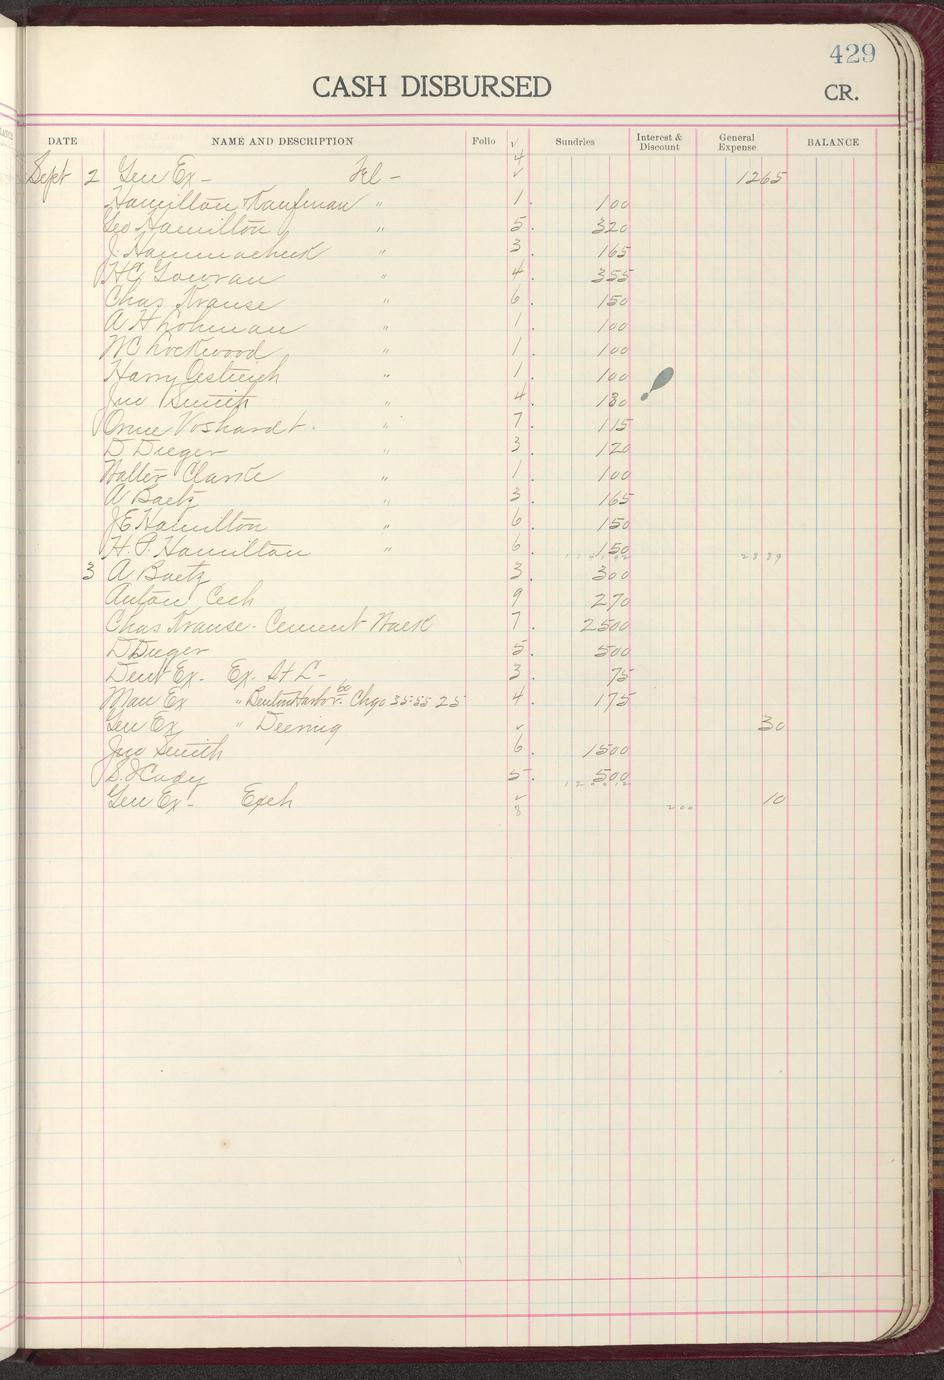 429
CASH DISBURSED
CR.
DATE NAME AND DESCRIPTION Folio √ Sundries Interest & Discount General Expense BALANCE
4
Sept 2 Gen Ex - Tel - √ 1265
Hamilton & Kaufman " 1. 100
Geo Hamilton " 5. 320
J. " 3. 165
HG Gowran " 4. 355
Chas Krause " 6. 150
A H Lohman " 1. 100
WC Lockwood " 1. 100
Harry Oestreich " 1. 100
Jno Smith " 4. 180
Orme Voshardt. " 7. 115
D. Dieger " 3. 120
Walter Clarke " 1. 100
A Baetz " 3. 165
JE Hamilton " 6. 150
H. P. Hamilton " 6. 150 2889
3 A Baetz 3. 300
Anton Cech 9 270
Chas Krause - Cement Walk 7. 2500
D Dieger 5. 500
Dent Ex - Ex. St L - 3 75
Man Ex " Benton Harbor 60 Chgo 35-55 25 4. 175
Gen Ex " Deering √ 30
Jno Smith 6. 1500
S. J Cady 5. 500
Gen Ex - Exch √ 200 10
8